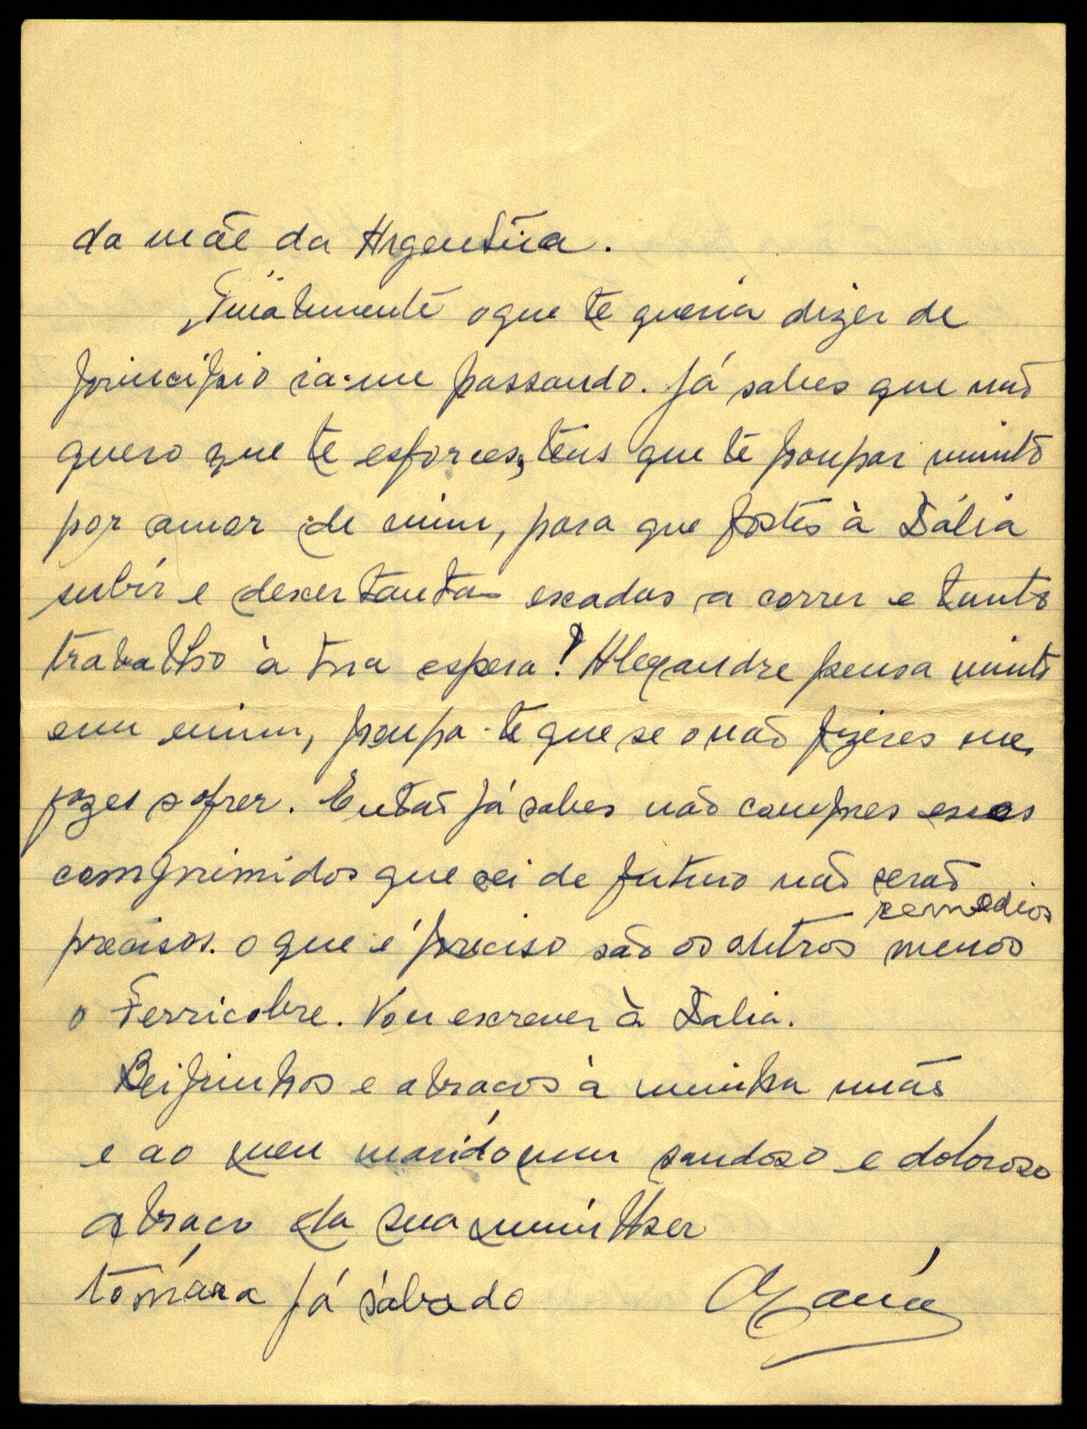 da mãe da Argentina.
Finalmente o que te queria dizer de
principio ia-me passando. Já sabes que não
quero que te esforces, tens que te poupar muinto
por amor de mim, para que fostes à Dália
subir e descer tantas escadas a correr e tanto
trabalho à tua espera! Alexandre pensa muinto
em mim, poupa-te que se o não fizeres me
fazes sofrer. Então já sabes não compres esses
comprimidos que sei de futuro não serão
precisos. o que é preciso são os outros remedios menos
o Ferricobre. Vou escrever à Dalia.
Beijinhos e abraços à minha mãe
e ao meu marido um saudoso e doloroso
abraço da sua mulher
tomára já sábado